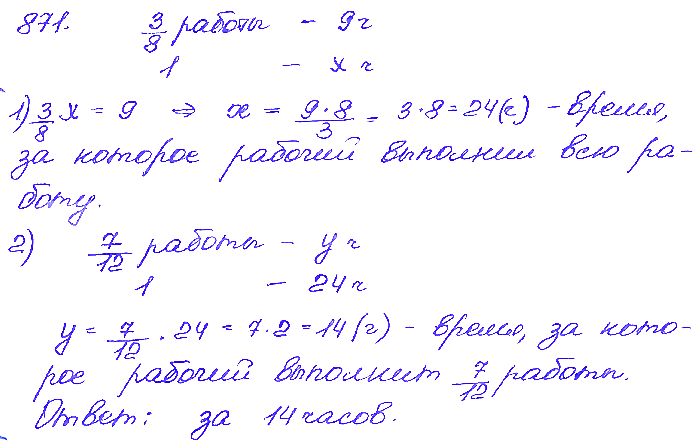 871. 3/8 работы - 9 ч
1 - x ч
1) 3/8 x = 9 ⇒ x = 9·8/3 = 3·8=24(ч) - время,
за которое рабочий выполнил всю ра-
боту.
2) 7/12 работы - y ч
1 - 24 ч
y = 7/12 · 24 = 7·2=14(ч) - время, за кото-
рое рабочий выполнит 7/12 работы.
Ответ: за 14 часов.